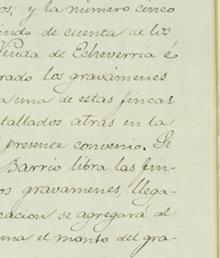 os; y la número cinco
iendo de cuenta de los
Viuda de Echeverria é
rado los gravámenes
a una de estas fincas
tallados atras en la
l presente convenio. Si
Barrio libra las fin-
os gravamenes, llega-
cacion se agregará de
una el monto del gra-